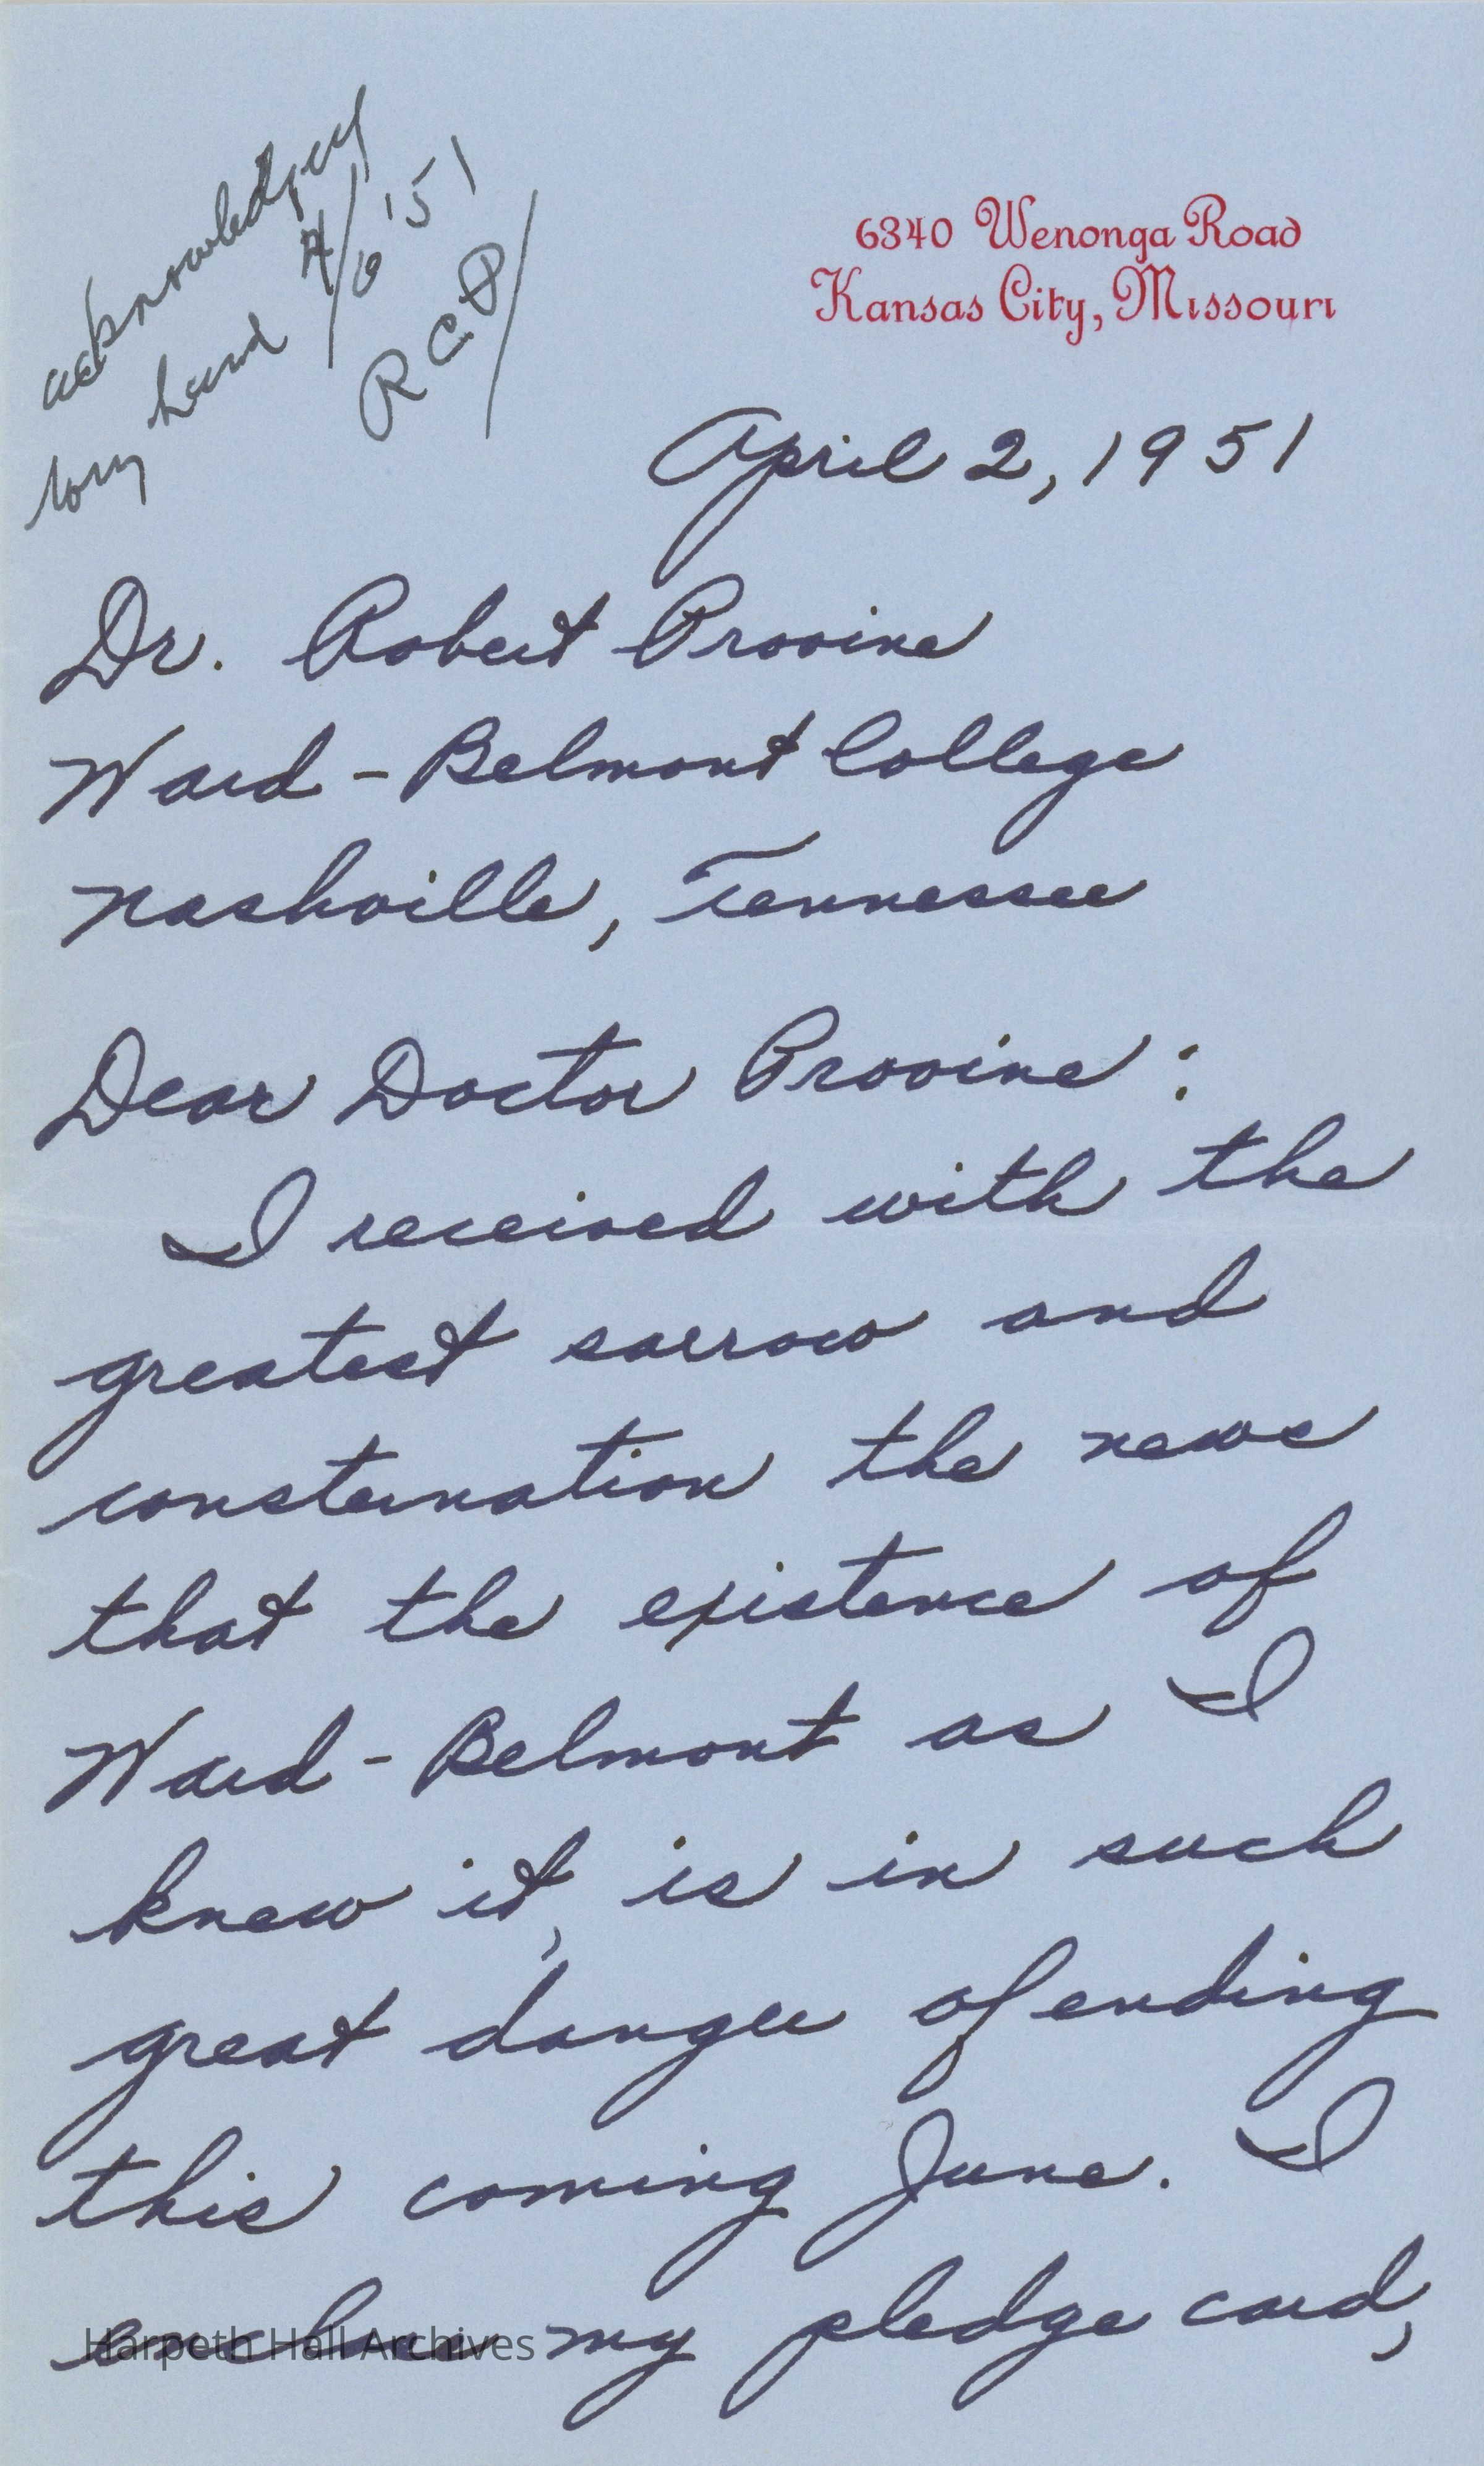 acknowledged
by hand 4/6 '51
R C P
6340 Wenonga Road
Kansas City, Missouri
April 2, 1951
Dr. Robert Provine
Ward-Belmont College
Nashville, Tennessee
Dear Doctor Provine:
I received with the
greatest sorrow and
consternation the news
that the existence of
Ward-Belmont as I
knew it, is in such
great danger of ending
this coming June. I
enclose my pledge card,
Harpeth Hall Archives